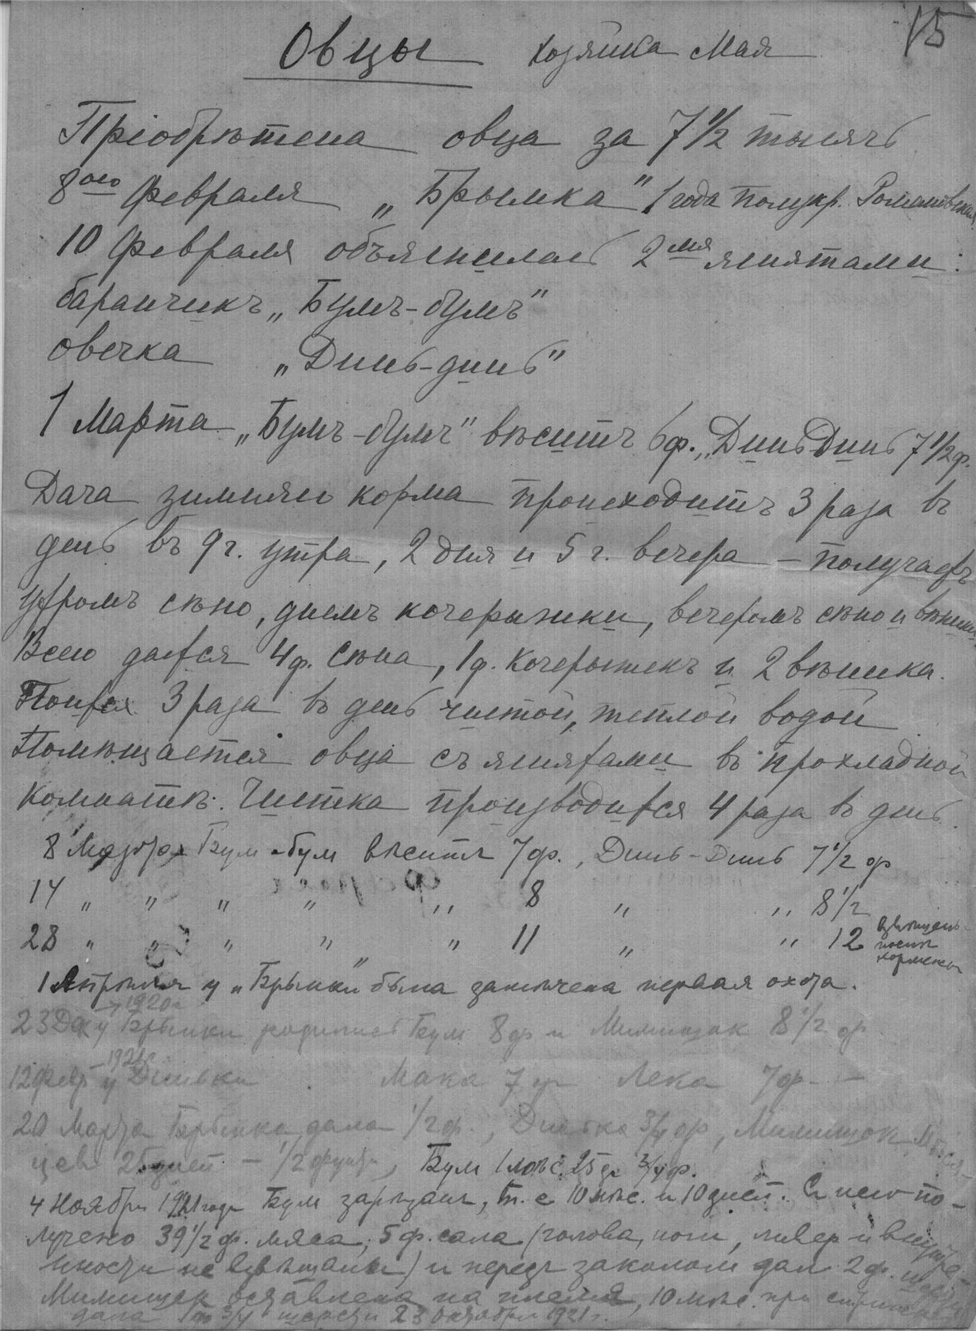 15
Овцы хозяйка Мая
Пріобрѣтена овца за 7 1/2 тысячъ
8ого Февраля „Брымка" 1 года полукр. Романовская
10 Февраля объягнилась 2мя ягнятами:
баранчикъ „Бумъ-бумъ"
овечка „Динь-динь"
1 Марта „Бумъ-бумъ" вѣситъ 6ф. „ДиньДинь 7 1/2 ф.
Дача зимняго корма происходитъ 3 раза въ
день въ 9 г. утра, 2 дня и 5 г. вечера – получаетъ
утромъ сѣно, днемъ кочерыжки, вечеромъ сѣно и вѣники
Всего дается 4ф. сѣна, 1ф. кочерыжекъ и 2 вѣника.
Поится 3 раза въ день чистой, теплой водой
Помѣщается овца съ ягнятами въ прохладной
комнатѣ. Чистка производится 4 раза въ день.
8 Марта Бум-бум вѣситъ 7ф., Динь-Динь 7 1/2 ф
14 „ „ „ „ „ 8 „ „ 8 1/2
28 „ „ „ „ „ 11 „ „ 12
послѣ
кормежки
1 Апрѣля у „Брымки" была замѣчена первая охота.
1920г
23 Дек у Брымки родились Бум 8 ф и Мимишак 8 1/2 ф
1921г
12 февр у Диньки Мака 7 ф Лека 7ф. –
20 Марта Брымка дала 1/2 ф., Динька 3/4 ф, Мимишок
25 дней – 1/2 фунта, Бум 1 мѣс. 25 д 3/4 ф.
4 Ноября 1921 года Бум зарѣзанъ, т. е 10 мѣс. и 10 дней. С него по-
лучено 39 1/2 ф. мяса, 5 ф. сала (голова, ноги, ливер и внутре-
нности не взвѣшаны) и передъ заколом дал 2 ф. шерсти
Мимишек оставлена на племя, 10 мѣс. при стрижкѣ
дала 1 ф 3/4 шерсти 23 октября 1921 г.